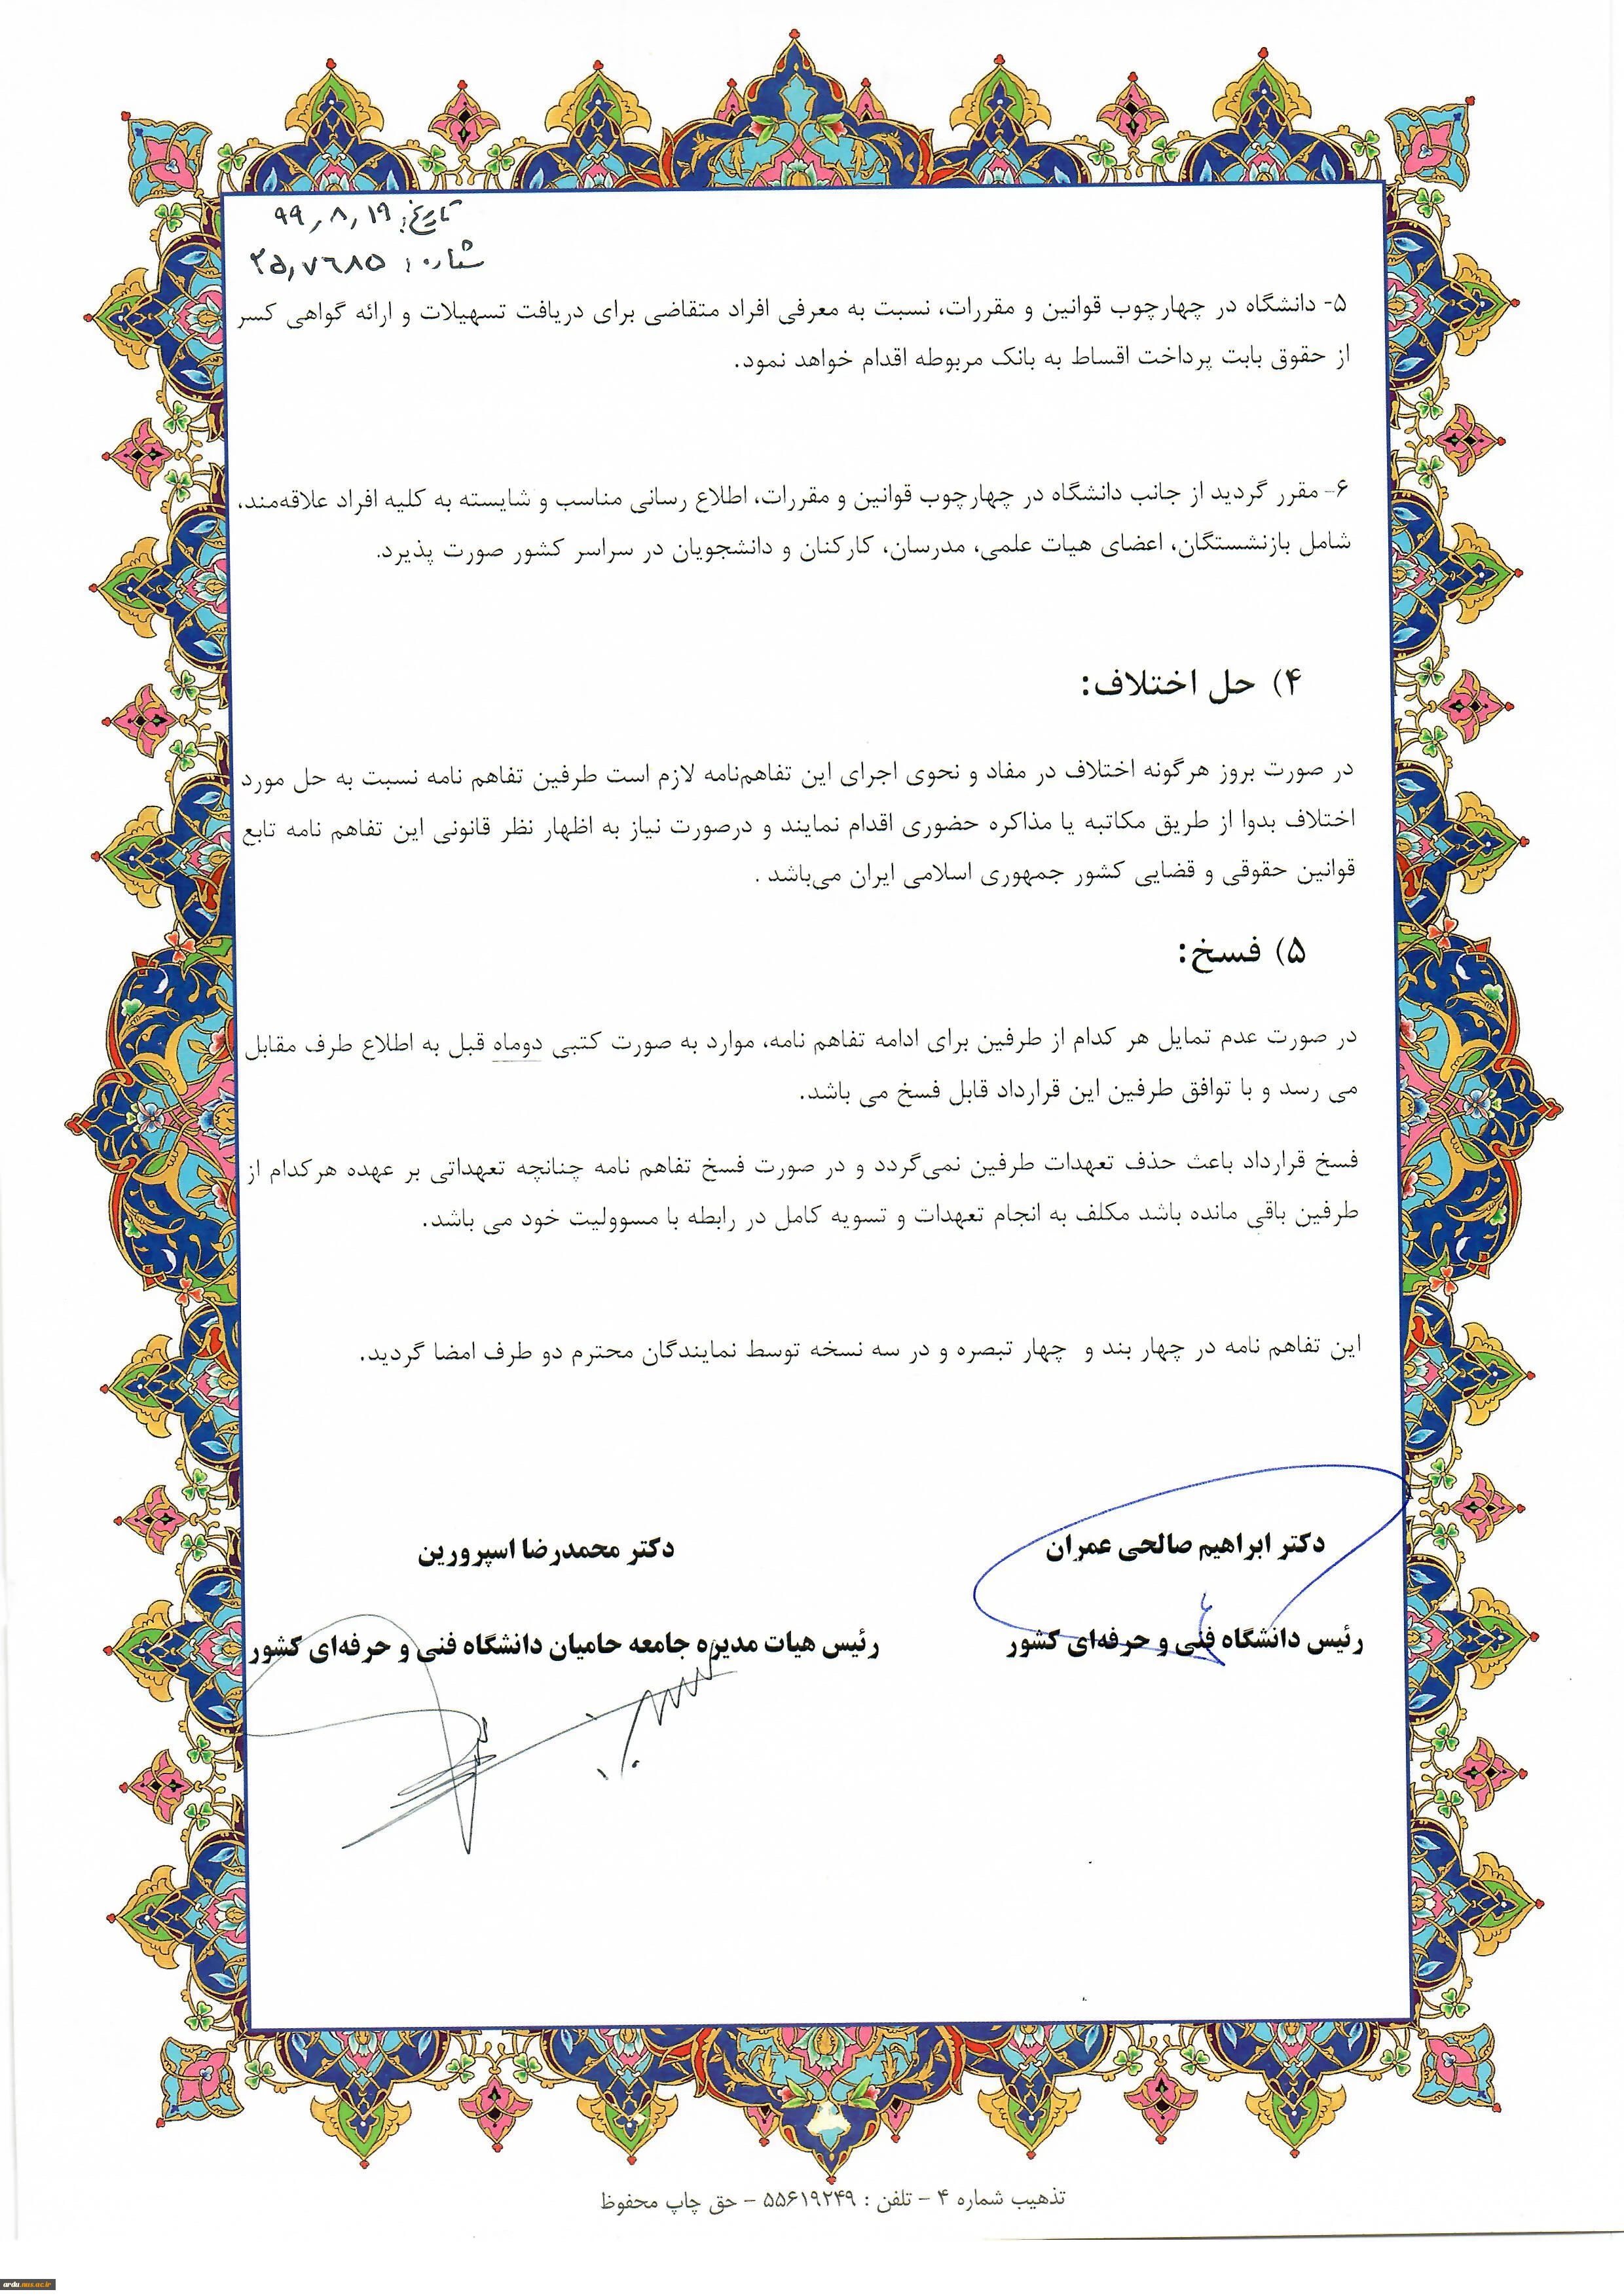 تاریخ: ۹۹٫۸٫۱۹
شماره: ۲۵٫۷۶۸۵
۵- دانشگاه در چهارچوب قوانین و مقررات، نسبت به معرفی افراد متقاضی برای دریافت تسهیلات و ارائه گواهی کسر
از حقوق بابت پرداخت اقساط به بانک مربوطه اقدام خواهد نمود.
۶- مقرر گردید از جانب دانشگاه در چهارچوب قوانین و مقررات، اطلاع رسانی مناسب و شایسته به کلیه افراد علاقه‌مند،
شامل بازنشستگان، اعضای هیات علمی، مدرسان، کارکنان و دانشجویان در سراسر کشور صورت پذیرد.
۴) حل اختلاف:
در صورت بروز هرگونه اختلاف در مفاد و نحوی اجرای این تفاهم‌نامه لازم است طرفین تفاهم نامه نسبت به حل مورد
اختلاف بدوا از طریق مکاتبه یا مذاکره حضوری اقدام نمایند و درصورت نیاز به اظهار نظر قانونی این تفاهم نامه تابع
قوانین حقوقی و قضایی کشور جمهوری اسلامی ایران می‌باشد .
۵) فسخ:
در صورت عدم تمایل هر کدام از طرفین برای ادامه تفاهم نامه، موارد به صورت کتبی دوماه قبل به اطلاع طرف مقابل
می رسد و با توافق طرفین این قرارداد قابل فسخ می باشد.
فسخ قرارداد باعث حذف تعهدات طرفین نمی‌گردد و در صورت فسخ تفاهم نامه چنانچه تعهداتی بر عهده هرکدام از
طرفین باقی مانده باشد مکلف به انجام تعهدات و تسویه کامل در رابطه با مسوولیت خود می باشد.
این تفاهم نامه در چهار بند و چهار تبصره و در سه نسخه توسط نمایندگان محترم دو طرف امضا گردید.
دکتر ابراهیم صالحی عمران
رئیس دانشگاه فنی و حرفه‌ای کشور
دکتر محمدرضا اسپرورین
رئیس هیات مدیره جامعه حامیان دانشگاه فنی و حرفه‌ای کشور
تذهیب شماره ۴ – تلفن : ۵۵۶۱۹۲۴۹ – حق چاپ محفوظ
ardu.nus.ac.ir